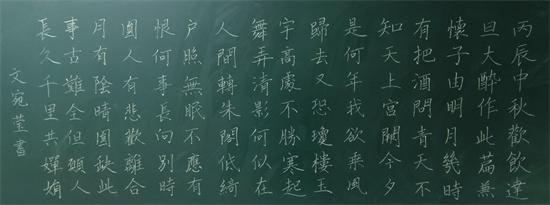 丙辰中秋歡飲達
旦大醉作此篇兼
懷子由明月幾時
有把酒問青天不
知天上宮闕今夕
是何年我欲乘風
歸去又恐瓊樓玉
宇高處不勝寒起
舞弄清影何似在
人間轉朱閣低綺
戶照無眠不應有
恨何事長向別時
圓人有悲歡離合
月有陰晴圓缺此
事古難全但願人
長久千里共嬋娟
文宛莹書